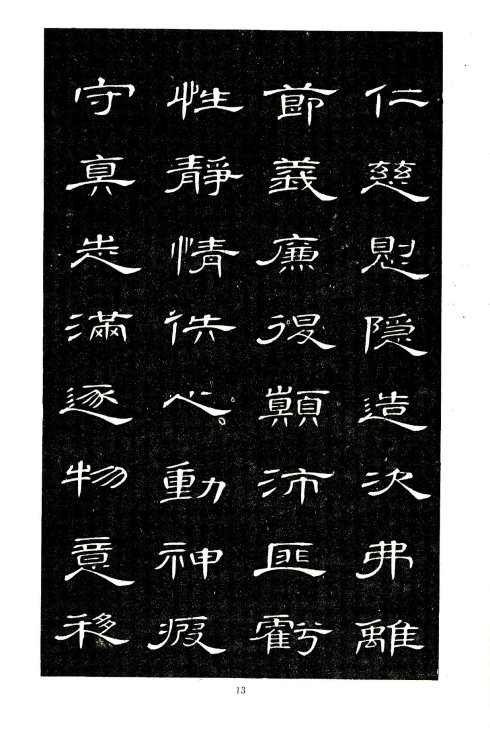 仁慈惻隱造次弗離
節義廉退顛沛匪虧
性靜情佚心動神疲
守真志滿逐物意移
13